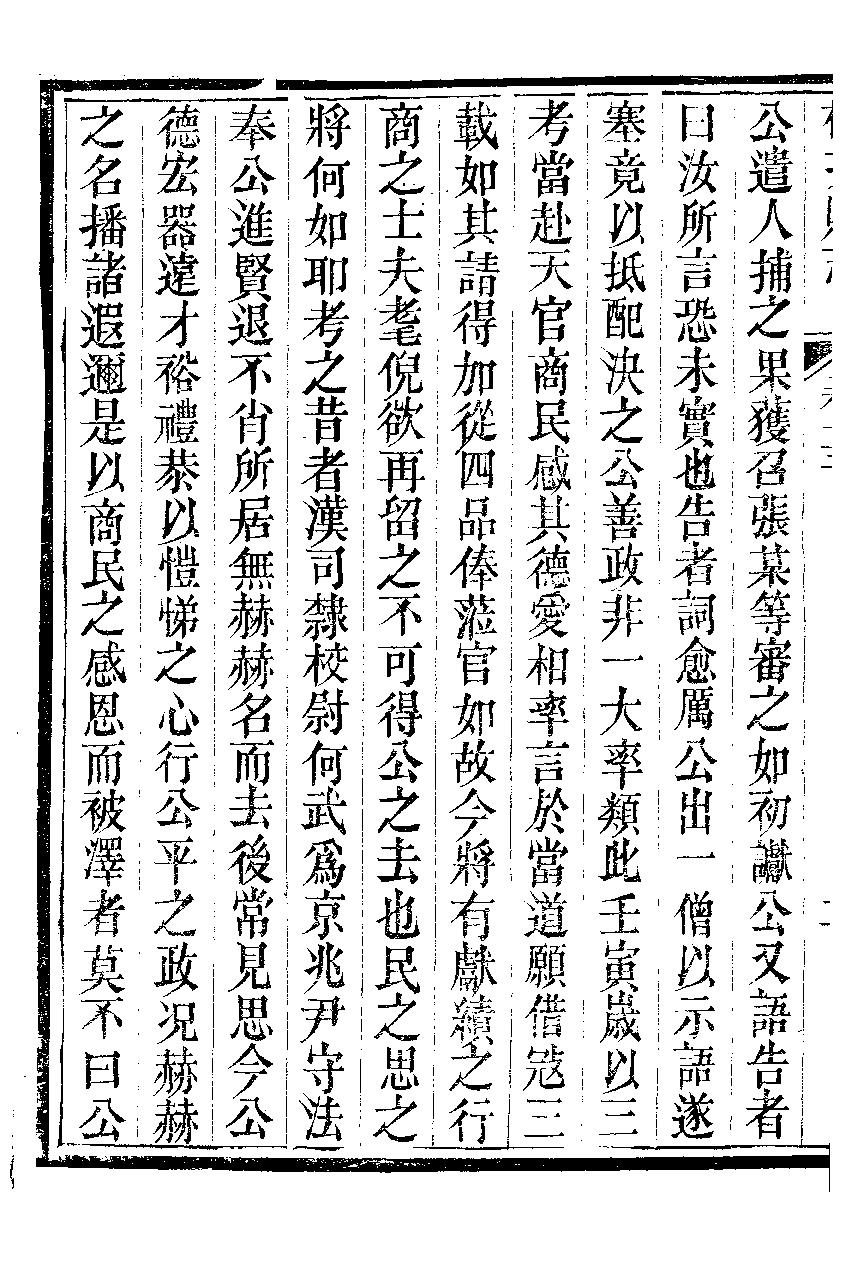 公遣人捕之果獲召張某等審之如初讞公又語告者
曰汝所言恐未實也告者詞愈厲公出一僧以示語遂
塞竟以抵配決之公善政非一大率類此壬寅歲以三
考當赴天官商民感其德愛相率言於當道願借寇三
載如其請得加從四品俸蒞官如故今將有獻績之行
商之士夫耄倪欲再留之不可得公之去也民之思之
將何如耶考之昔者漢司隸校尉何武爲京兆尹守法
奉公進賢退不肖所居無赫赫名而去後常見思今公
德宏器遠才裕禮恭以愷悌之心行公平之政况赫赫
之名播諸遐邇是以商民之感恩而被澤者莫不曰公